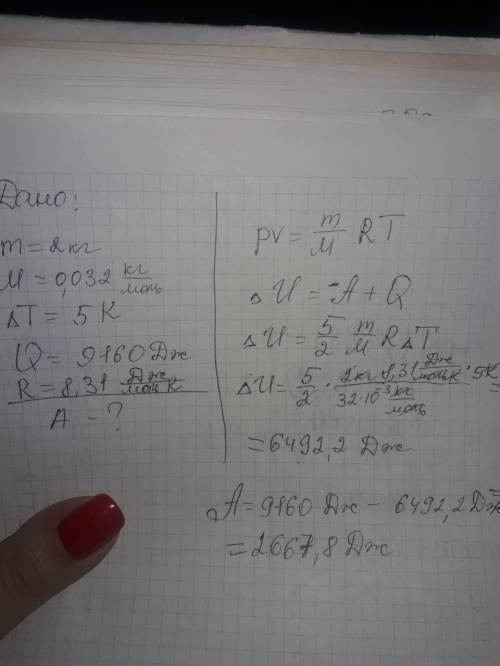 Дано:
m = 2 кг
M = 0,032 кг/моль
ΔT = 5 К
Q = 9160 Дж
R = 8,31 Дж/моль К
A - ?
pV = m/M RT
ΔU = -A + Q
ΔU = 5/2 m/M RΔT
ΔU = 5/2 · 2 кг · 8,31 Дж/моль К · 5 К / 32·10⁻³ кг/моль =
= 6492,2 Дж
A = 9160 Дж - 6492,2 Дж =
= 2667,8 Дж